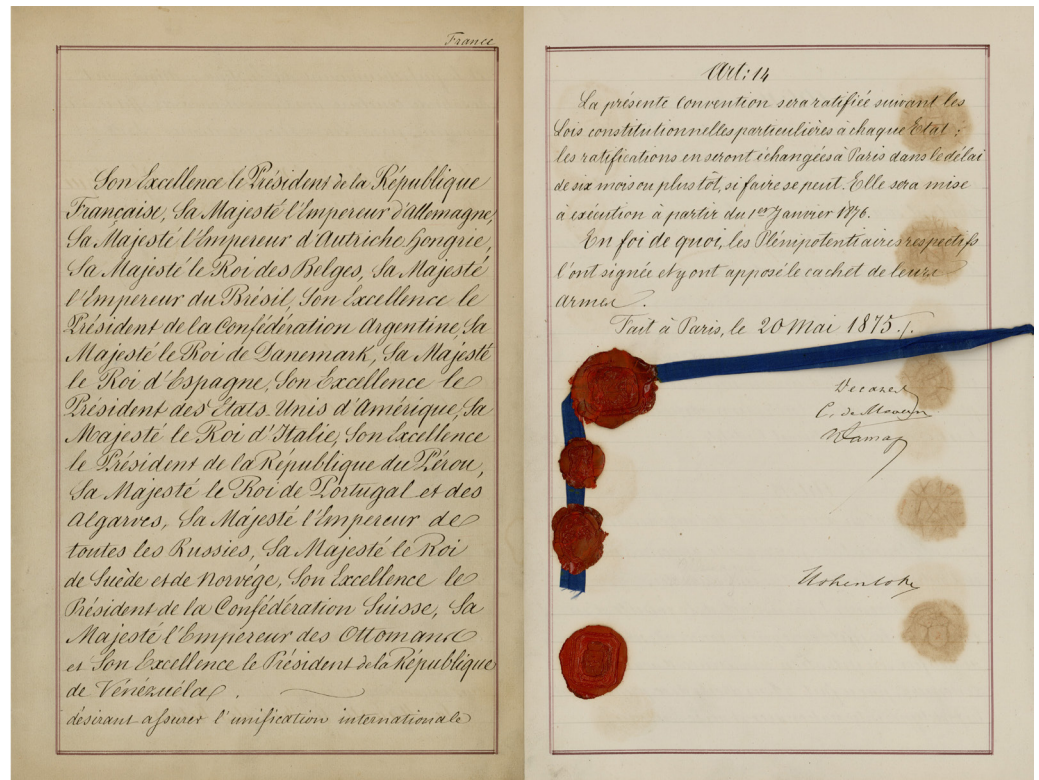 France
Son Excellence le Président de la République
Française, Sa Majesté l'Empereur d'Allemagne,
Sa Majesté l'Empereur d'Autriche Hongrie,
Sa Majesté le Roi des Belges, Sa Majesté
l'Empereur du Brésil, Son Excellence le
Président de la Confédération Argentine, Sa
Majesté le Roi de Danemark, Sa Majesté
le Roi d'Espagne, Son Excellence le
Président des Etats-Unis d'Amérique, Sa
Majesté le Roi d'Italie, Son Excellence
le Président de la République du Pérou,
Sa Majesté le Roi de Portugal et des
Algarves, Sa Majesté l'Empereur de
toutes les Russies, Sa Majesté le Roi
de Suède et de Norvége, Son Excellence le
Président de la Confédération Suisse, Sa
Majesté l'Empereur des Ottomans
et Son Excellence le Président de la République
de Vénézuéla.
désirant assurer l'unification internationale
Art: 14
La présente Convention sera ratifiée suivant les
lois constitutionnelles particulières à chaque Etat;
les ratifications en seront échangées à Paris dans le délai
de six mois ou plus tôt, si faire se peut. Elle sera mise
à exécution à partir du 1er Janvier 1876.
En foi de quoi, les Plénipotentiaires respectifs
l'ont signée et y ont apposé le cachet de leurs
armes.
Fait à Paris, le 20 Mai 1875.
Decazes
C. de Meaux
Dumas
Hohenlohe